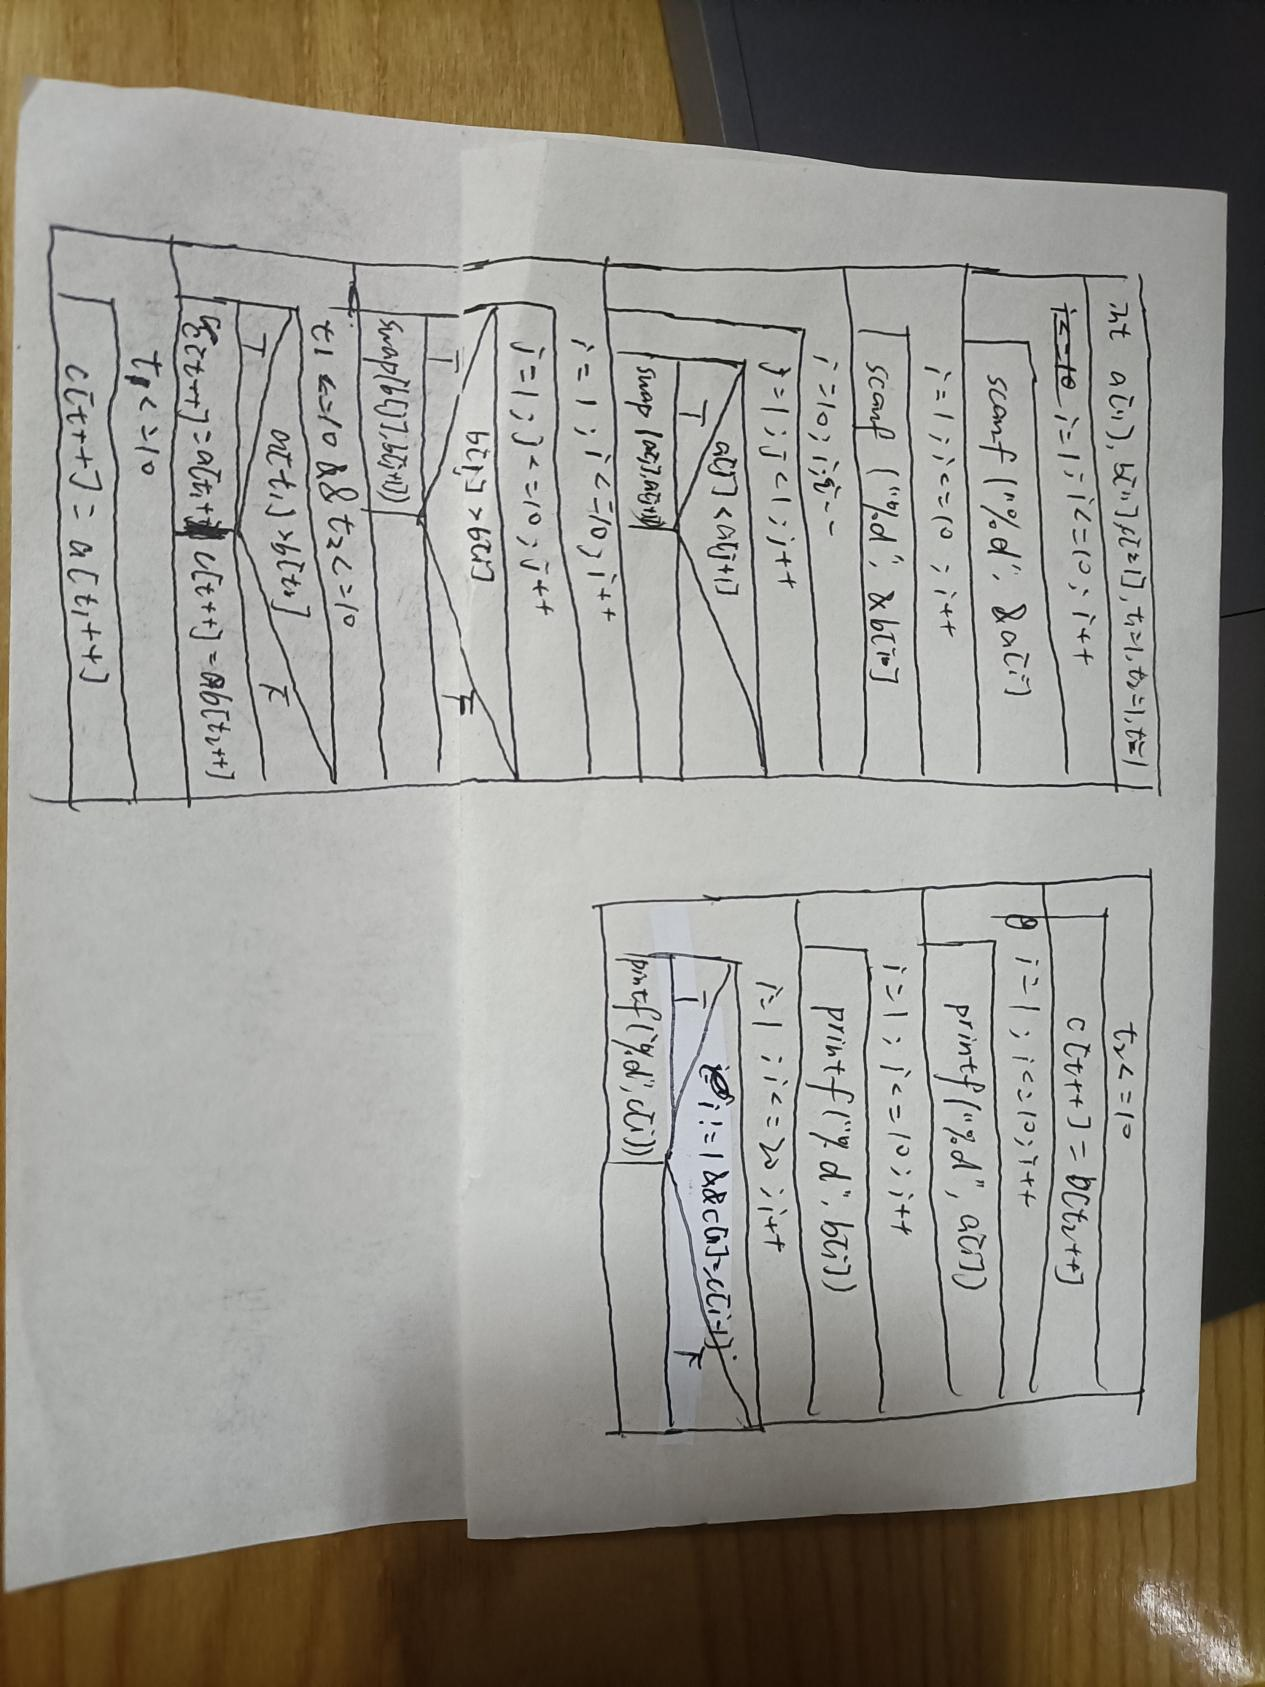 int a[11], b[11], c[21], t1=1, t2=1, t=1
i=1; i<=10; i++
scanf("%d", &a[i]
i=1; i<=10; i++
scanf("%d", &b[i]
i=10; i--
j=1; j<i; j++
a[j]<a[j+1]
T
swap(a[j],a[j+1])
i=1; i<=10; i++
j=1; j<=10; j++
b[j]>b[i]
T F
swap(b[j],b[j+1])
t1<=10 && t2<=10
a[t1]>b[t2]
T F
c[t++]=a[t1++] c[t++]=b[t2++]
t1<=10
c[t++]=a[t1++]
t2<=10
c[t++]=b[t2++]
i=1; i<=10; i++
printf("%d", a[i])
i=1; i<=10; i++
printf("%d", b[i])
i=1; i<=20; i++
i!=1&&c[i]=c[i-1]
T F
printf("%d", c[i])